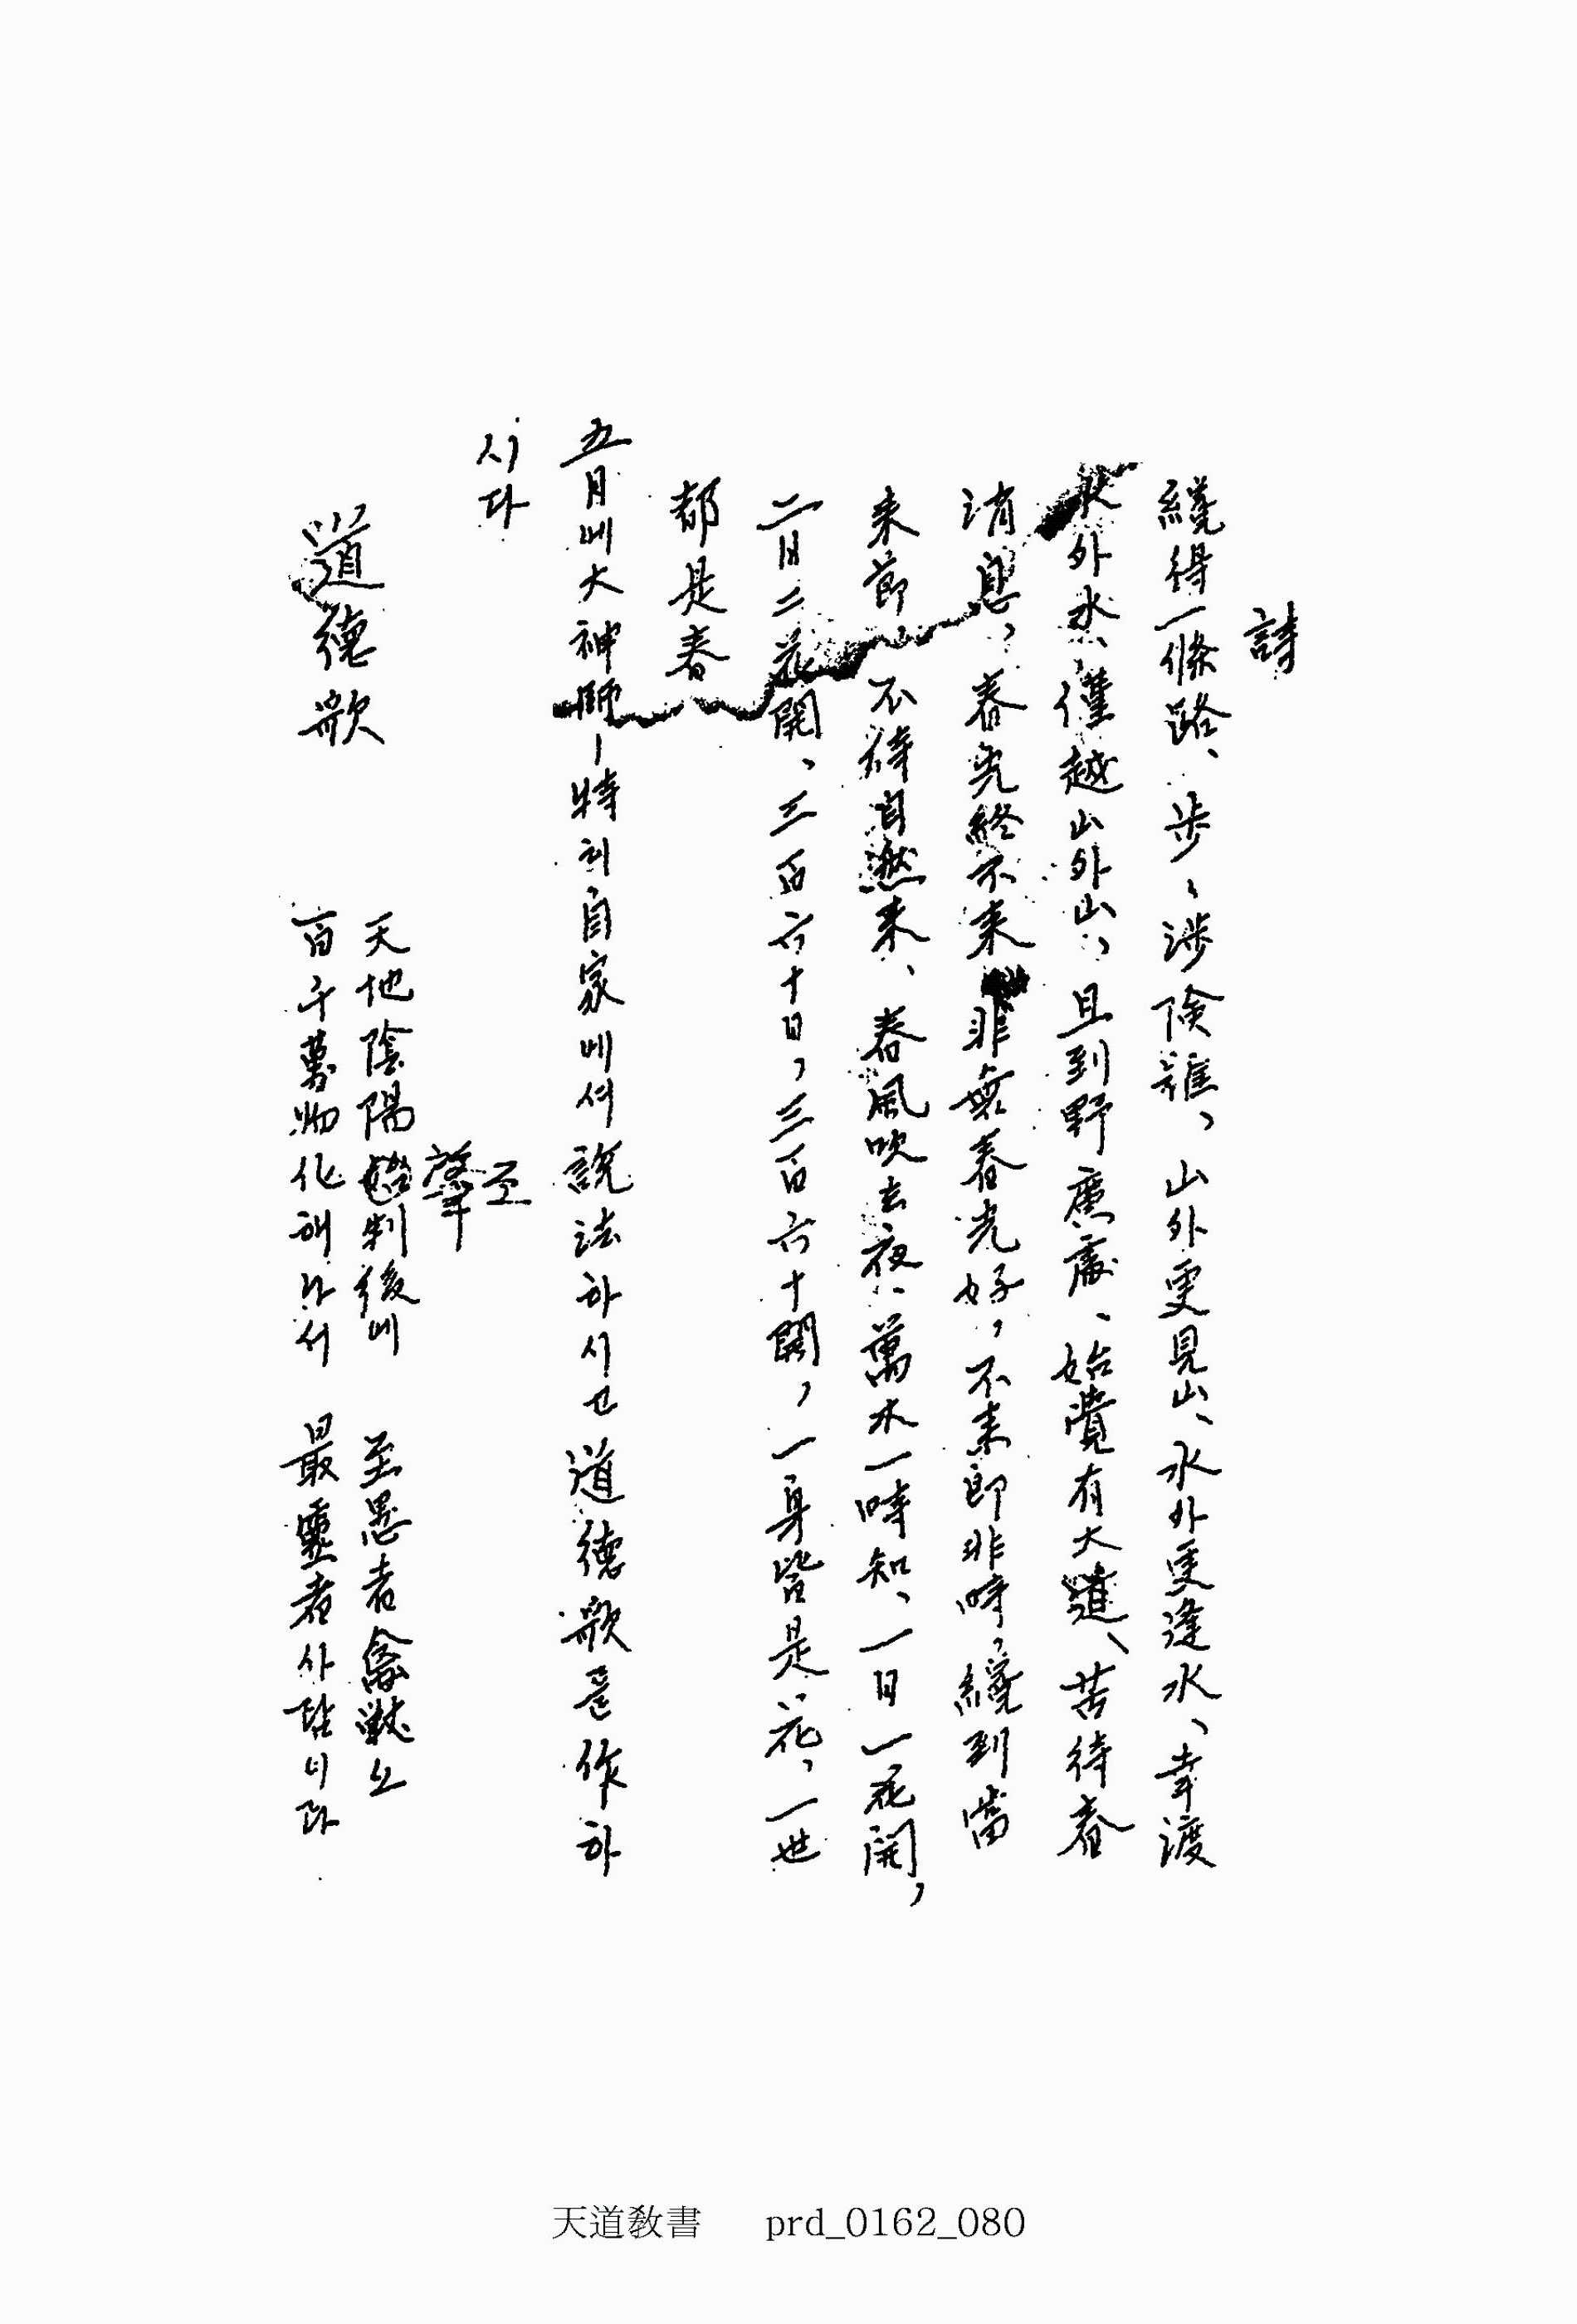 詩
纔得一條路、步々涉險難、山外更見山、水外更逢水、幸渡
水外水、僅越山外山、且到野廣處、始覺有大道、苦待春
消息、春光終不來 非無春光好、不來卽非時、纔到當
來節 不待自然來、春風吹去夜、萬木一時知、一日一花開、
二月二花開、三百六十日、三百六十開、一身皆是花、一世
都是春
五月에大神師ㅣ特히自家에셔說法하시고道德歌를作하
시다
道德歌
肇조
天地陰陽始判後에 至愚者禽獸오
百千萬物化해나서 最靈者사람이라
天道敎書 prd_0162_080